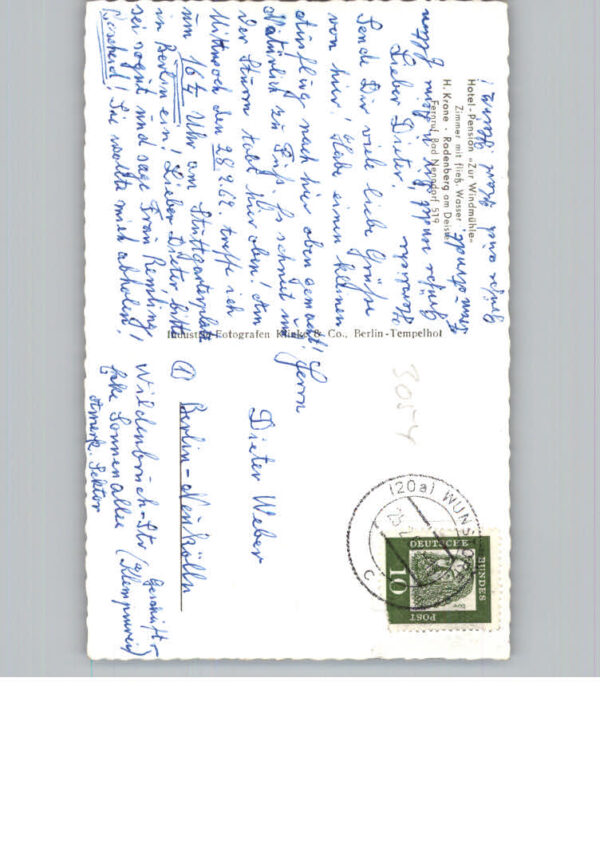 Hotel-Pension »Zur Windmühle«
Zimmer mit fließ. Wasser
H. Krone - Rodenberg am Deister
Fernruf Bad Nenndorf 519
Lieber Dieter.
Sende Dir viele liebe Grüße
von hier! Habe einen kleinen
Ausflug nach hier oben gemacht!
Natürlich zu Fuß. Es schneit und
Der Sturm tobt hier oben! Am
Mittwoch den 28.2.62 treffe ich
um 16¼ Uhr am Stuttgarterplatz
in Berlin ein! Lieber Dieter bitte
sei so gut und sage Frau Remling
Bescheid! Sie wollte mich abholen!
Industrie-Fotografen Klinke & Co., Berlin-Tempelhof
Herrn
Dieter Weber
(1) Berlin-Neukölln
Wildenbruch-Str
Ecke Sonnenallee
Amerk. Sektor
Geschäft
Klempnerei
3054
(20a) WUNSTORF
DEUTSCHE
BUNDES
POST
10